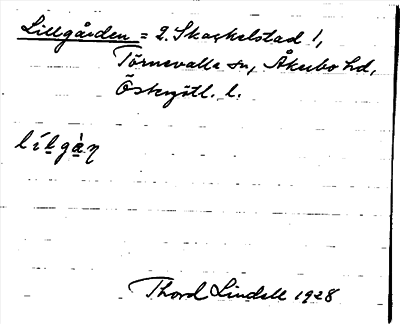 Lillgården = 2. Skackelstad 1,
Törnevalla sn, Åkerbo hd,
Östergötl. l.
lílgà̱ŋ
Thord Lindell 1928